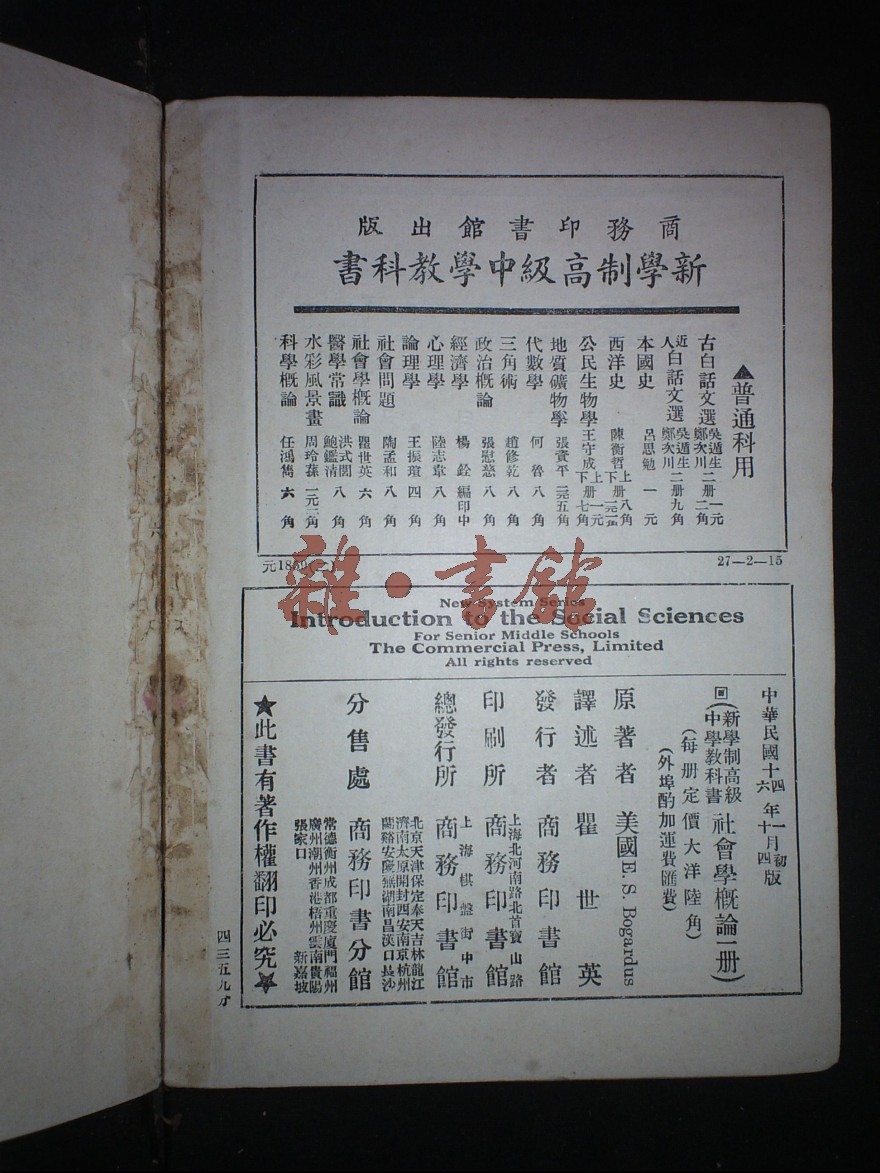 商務印書館出版
新學制高級中學教科書
▲普通科用
古白話文選 吳遁生 鄭次川 二册 一元二角
近人白話文選 吳遁生 鄭次川 二册 九角
本國史 呂思勉 一元
西洋史 陳衡哲 上册 八角
公民生物學 王守成 上册 一元 下册 七角
地質礦物學 張資平
代數學 何魯 八角
三角術 趙修乾 八角
政治概論 張慰慈 八角
經濟學 楊銓 編印中
心理學 陸志韋 八角
論理學 王振瑄 四角
社會問題 陶孟和 八角
社會學概論 瞿世英 六角
醫學常識 洪式閭 鮑鑑清 八角
水彩風景畫 周玲蓀 一元二角
科學概論 任鴻雋 六角
27—2—15
元
雜·書館
New System Series
Introduction to the Social Sciences
For Senior Middle Schools
The Commercial Press, Limited
All rights reserved
中華民國十四年一月初版
十六年十月四版
回(新學制高級中學教科書 社會學概論一册)
(每册定價大洋陸角)
(外埠酌加運費匯費)
原著者 美國E. S. Bogardus
譯述者 瞿世英
發行者 商務印書館
印刷所 上海北河南路北首寶山路 商務印書館
總發行所 上海棋盤街中市 商務印書館
分售處 商務印書分館
北京天津保定奉天吉林龍江
濟南太原開封西安南京杭州
蘭谿安慶蕪湖南昌漢口長沙
常德衡州成都重慶廈門福州
廣州潮州香港梧州雲南貴陽
張家口 新嘉坡
★此書有著作權翻印必究★
四三五九